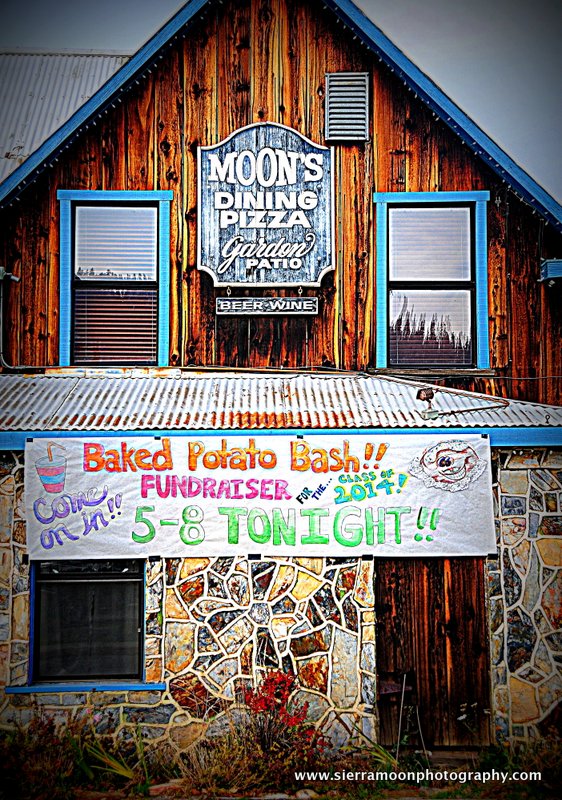 MOON'S
DINING
PIZZA
Garden
PATIO
BEER-WINE
Baked Potato Bash!!
FUNDRAISER FOR THE... CLASS OF 2014!
Come on in!!
5-8 TONIGHT!!
www.sierramoonphotography.com